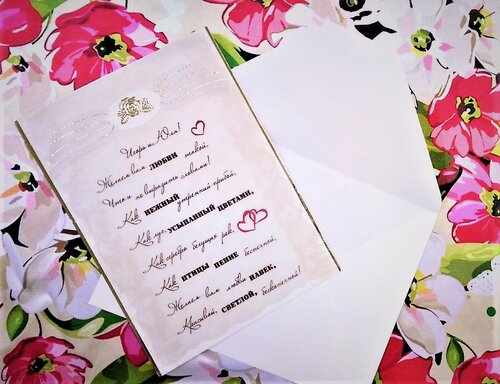 Игорь и Юля!
Желаем вам ЛЮБВИ такой,
Что и не выразишь словами!
Как НЕЖНЫЙ утренний прибой,
Как луг, УСЫПАННЫЙ ЦВЕТАМИ,
Как серебро бегущих рек,
Как ПТИЦЫ ПЕНИЕ беспечной,
Желаем вам любви НАВЕК,
Красивой, СВЕТЛОЙ, бесконечной!